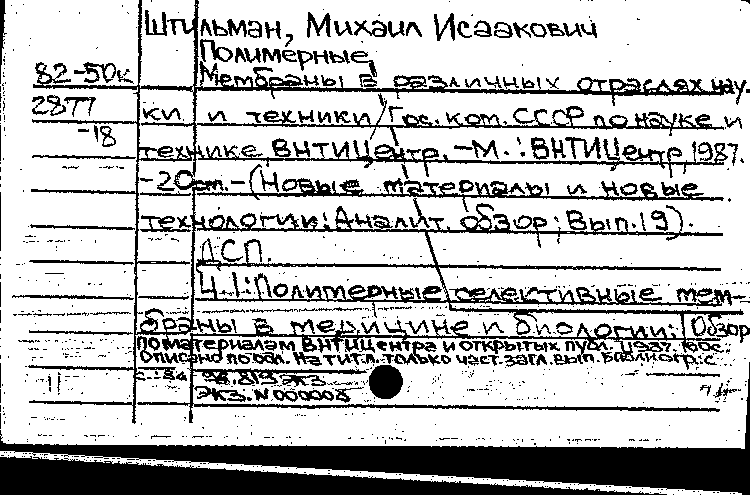 Штильман, Михаил Исаакович
Полимерные
82-50к Мембраны в различных отраслях нау-
2877 ки и техники/Гос. ком. СССР по науке и
-18
технике, ВНТИЦентр. -М.: ВНТИЦентр, 1987.
-20см.-(Новые материалы и новые
технологии: Аналит. обзор; Вып. 19).
ДСП.
Ч.1: Полимерные селективные мем-
браны в медицине и биологии: [Обзор
по материалам ВНТИЦентра и открытых публ.] 1987. 160с.
Описано по обл. На тит. л. только част. загл. вып. Библиогр.: с.
с.: 84 экз.
Экз. N 000008